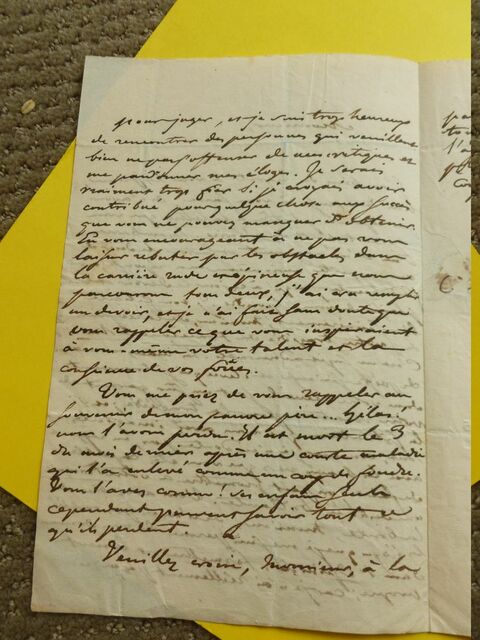 pour juger, et je suis trop heureux
de rencontrer des personnes qui veuillent
bien ne pas s'offenser de mes critiques et
me pardonner mes éloges. Je serais
vraiment trop fier si je croyais avoir
contribué pour quelque chose aux succès
que vous ne pouvez manquer d'obtenir.
En vous encourageant à ne pas vous
laisser rebuter par les obstacles dans
la carrière rude et épineuse que nous
parcourons tous deux, j'ai cru remplir
un devoir, et je n'ai fait sans doute que
vous rappeler ce que vous inspiraient
à vous-même votre talent et la
conscience de vos forces.
Vous me priez de vous rappeler au
souvenir de mon pauvre père... Hélas!
nous l'avons perdu. Il est mort le 3
du mois dernier après une courte maladie
qui l'a enlevé comme un coup de foudre.
Vous l'avez connu! ses enfans seuls
cependant peuvent savoir tout ce
qu'ils perdent.
Veuillez croire, Monsieur, à la